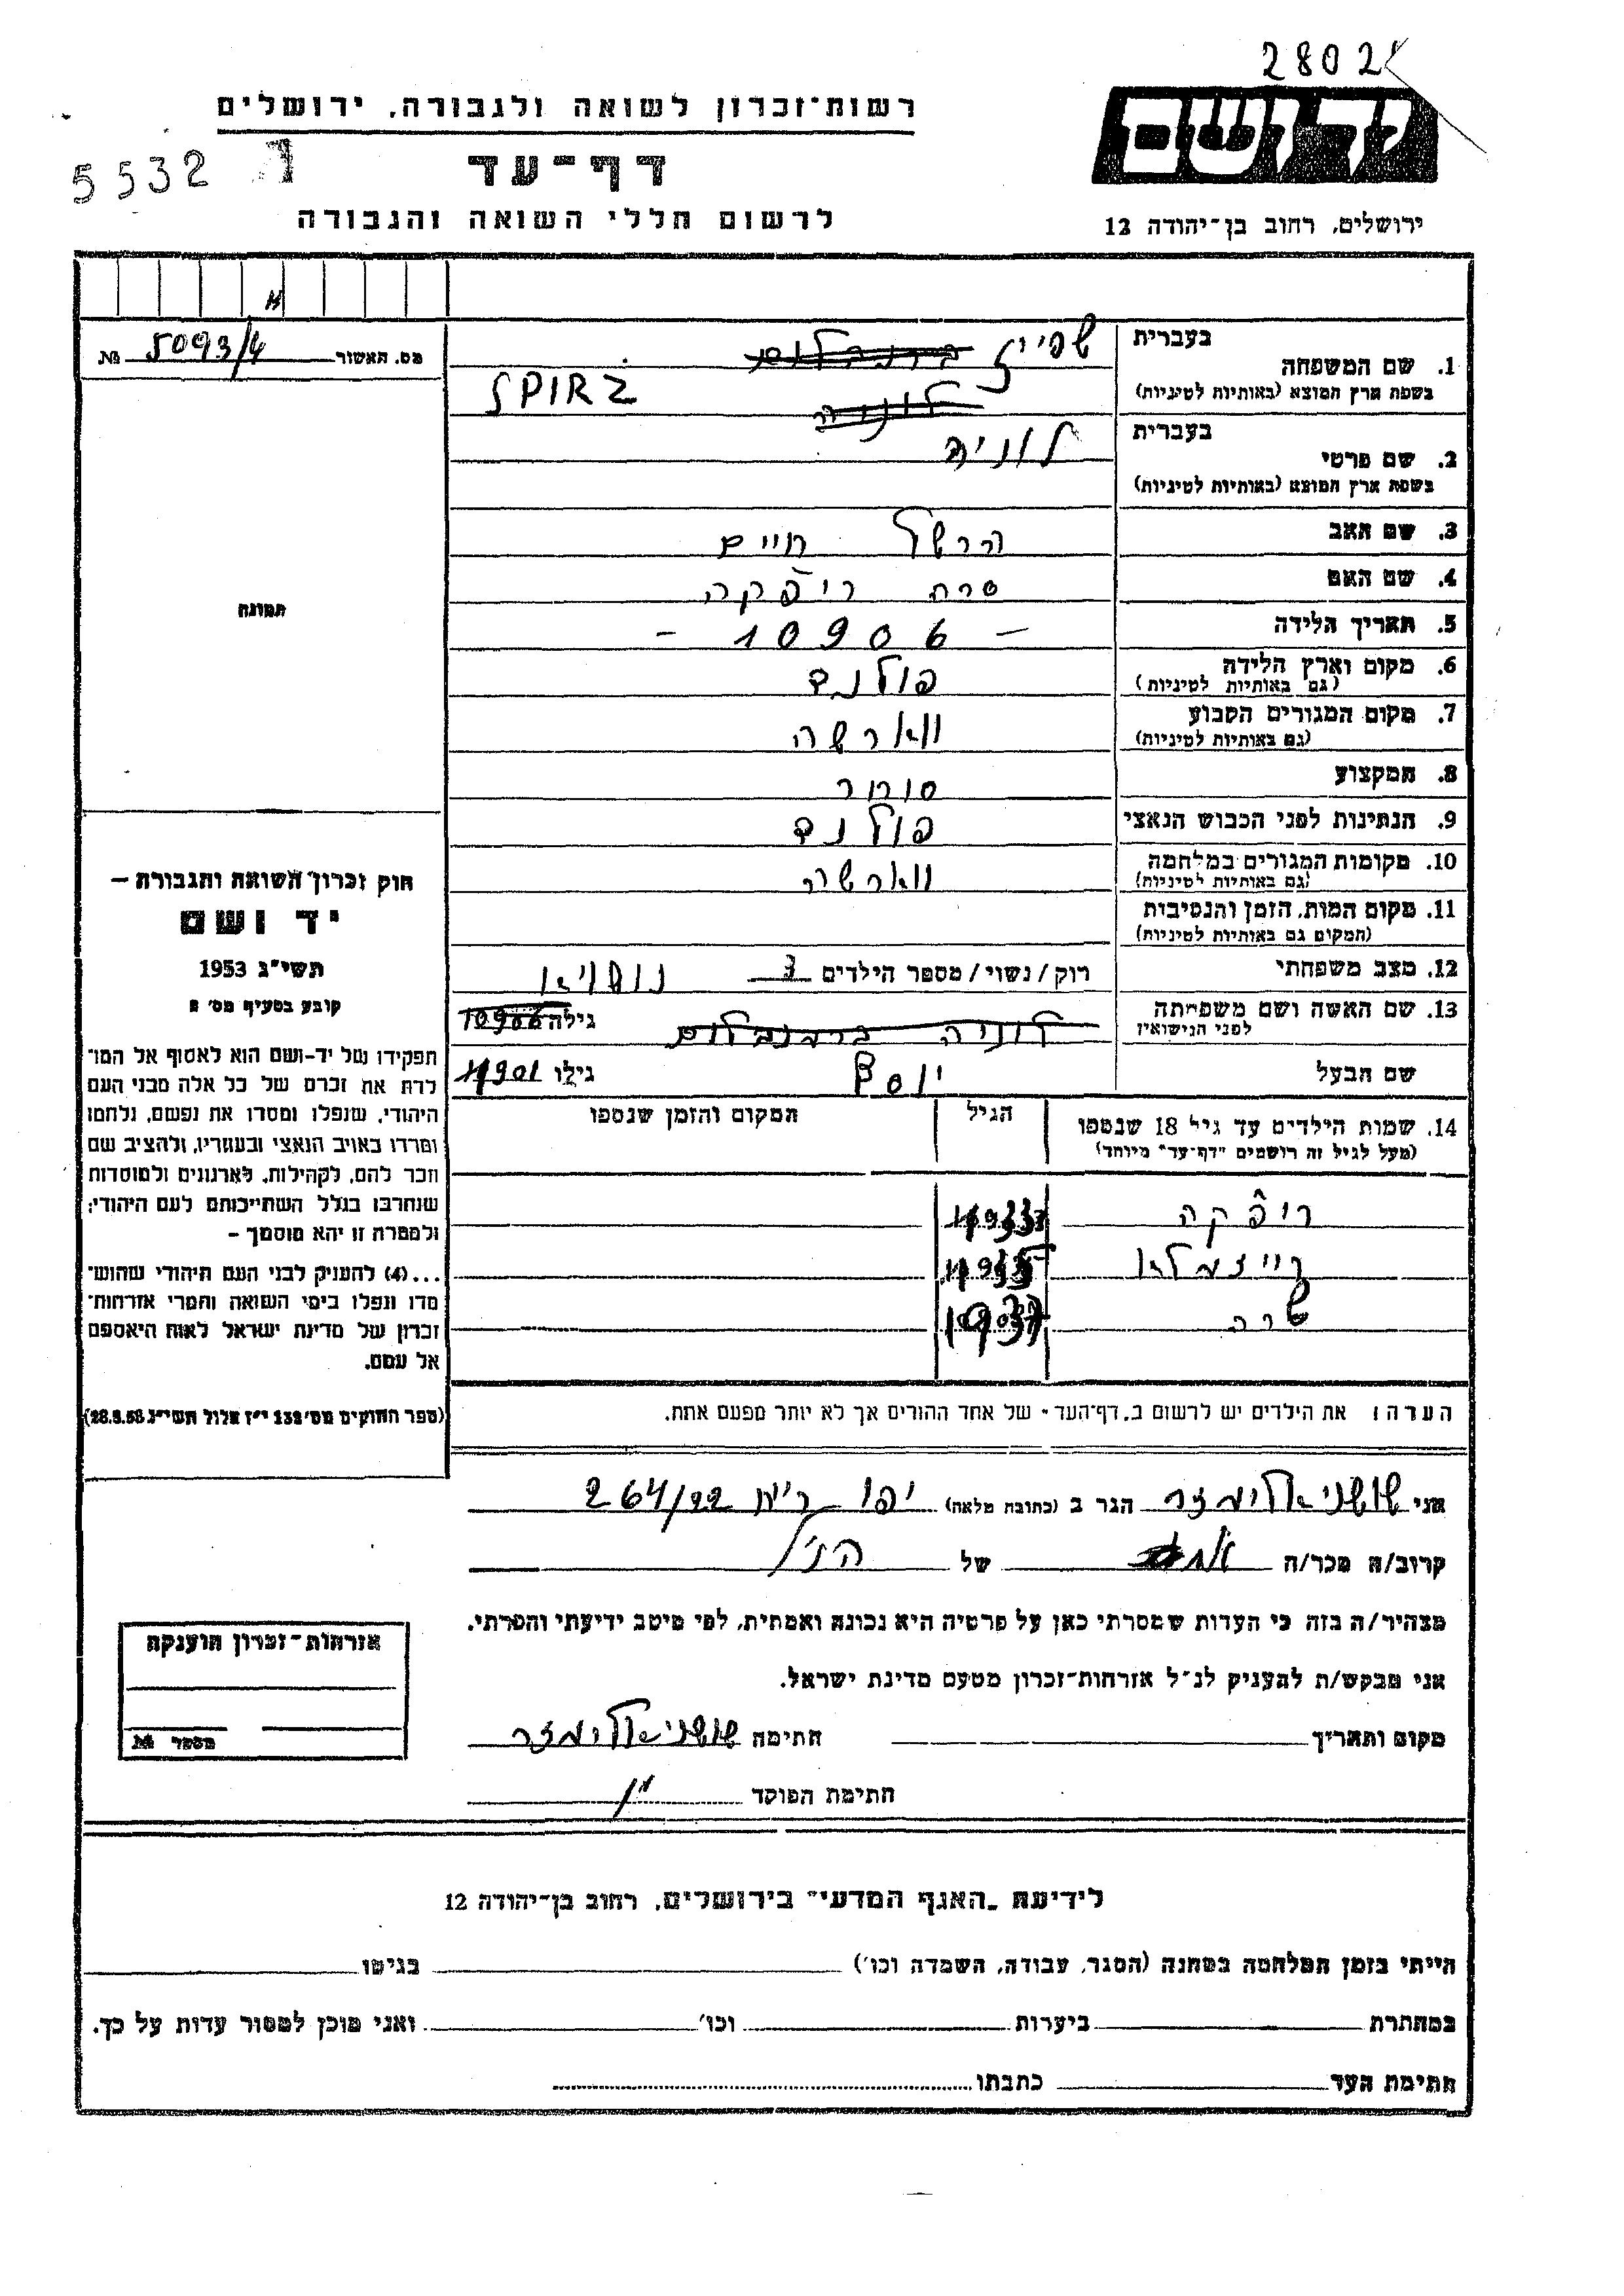 2802
יד ושם
רשות־זכרון לשואה ולגבורה, ירושלים
5532
דף־עד
לרשום חללי השואה והגבורה
ירושלים, רחוב בן־יהודה 12
מס. האשור 5093/4 №
בעברית
1. שם המשפחה
שפייז
בשפת ארץ המוצא (באותיות לטיניות)
בעברית
2. שם פרטי
לוניה
בשפת ארץ המוצא (באותיות לטיניות)
3. שם האב הרשל חיים
4. שם האם סרה ריפקה
תמונה
5. תאריך הלידה — 10906 —
6. מקום וארץ הלידה פולנד
(גם באותיות לטיניות)
7. מקום המגורים הקבוע ווארשה
(גם באותיות לטיניות)
8. המקצוע סוחר
9. הנתינות לפני הכבוש הנאצי פולנד
10. מקומות המגורים במלחמה ווארשה
(גם באותיות לטיניות)
11. מקום המות, הזמן והנסיבות
(המקום גם באותיות לטיניות)
12. מצב משפחתי רוק/נשוי/מספר הילדים 3
13. שם האשה ושם משפחתה
לפני הנישואין
לוניה גילה 10906
שם הבעל יוסף גילו 11901
14. שמות הילדים עד גיל 18 שנספו
(מעל לגיל זה רושמים "דף־עד" מיוחד)
הגיל
המקום והזמן שנספו
ריפקה
שרה
הערה: את הילדים יש לרשום ב„דף־העד" של אחד ההורים אך לא יותר מפעם אחת.
חוק זכרון השואה והגבורה —
יד ושם
תשי״ג 1953
קובע בסעיף מס׳ 2
תפקידו של יד-ושם הוא לאסוף אל המו־
לדת את זכרם של כל אלה מבני העם
היהודי, שנפלו ומסרו את נפשם, נלחמו
ומרדו באויב הנאצי ובעוזריו, ולהציב שם
וזכר להם, לקהילות, לארגונים ולמוסדות
שנחרבו בגלל השתייכותם לעם היהודי;
ולמטרה זו יהא מוסמך —
...(4) להעניק לבני העם היהודי שהוש־
מדו ונפלו בימי השואה והמרי אזרחות־
זכרון של מדינת ישראל לאות היאספם
אל עמם.
(ספר החוקים מס׳ 132 י״ז אלול תשי״ג 28.8.53)
אני שושני אלימצר הגר ב (כתובת מלאה) יפו 264/22
קרוב/ה מכר/ה של הנ״ל
מצהיר/ה בזה כי העדות שמסרתי כאן על פרטיה היא נכונה ואמתית, לפי מיטב ידיעתי והכרתי.
אני מבקש/ת להעניק לנ״ל אזרחות־זכרון מטעם מדינת ישראל.
מקום ותאריך חתימה שושני אלימצר
חתימת הפוקד
אזרחות־זכרון הוענקה
מספר №
לידיעת „האגף המדעי" בירושלים, רחוב בן־יהודה 12
הייתי בזמן המלחמה במחנה (הסגר, עבודה, השמדה וכו׳) בגיטו
במחתרת ביערות וכו׳ ואני מוכן למסור עדות על כך.
חתימת העד כתבתו